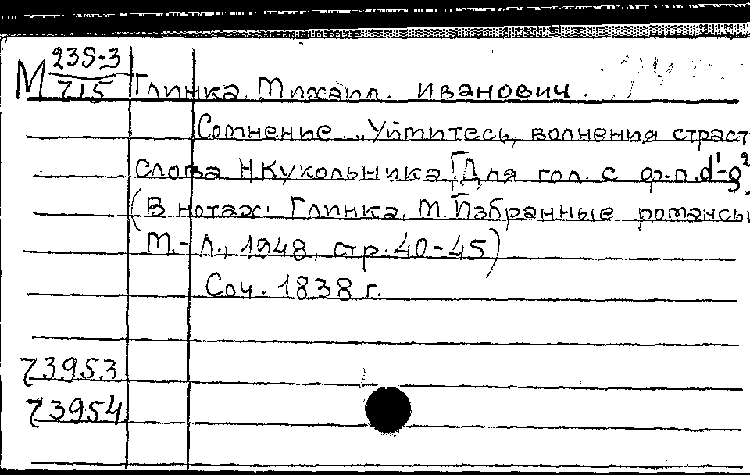 М 235-3
715
Глинка, Михаил Иванович.
Сомнение „Уймитесь, волнения страст
слова Н.Кукольника [Для гол. с ф.п. d¹-g²
(В нотах: Глинка, М. Избранные романсы
М.-Л., 1948, стр. 40-45)
Соч. 1838 г.
73953
73954